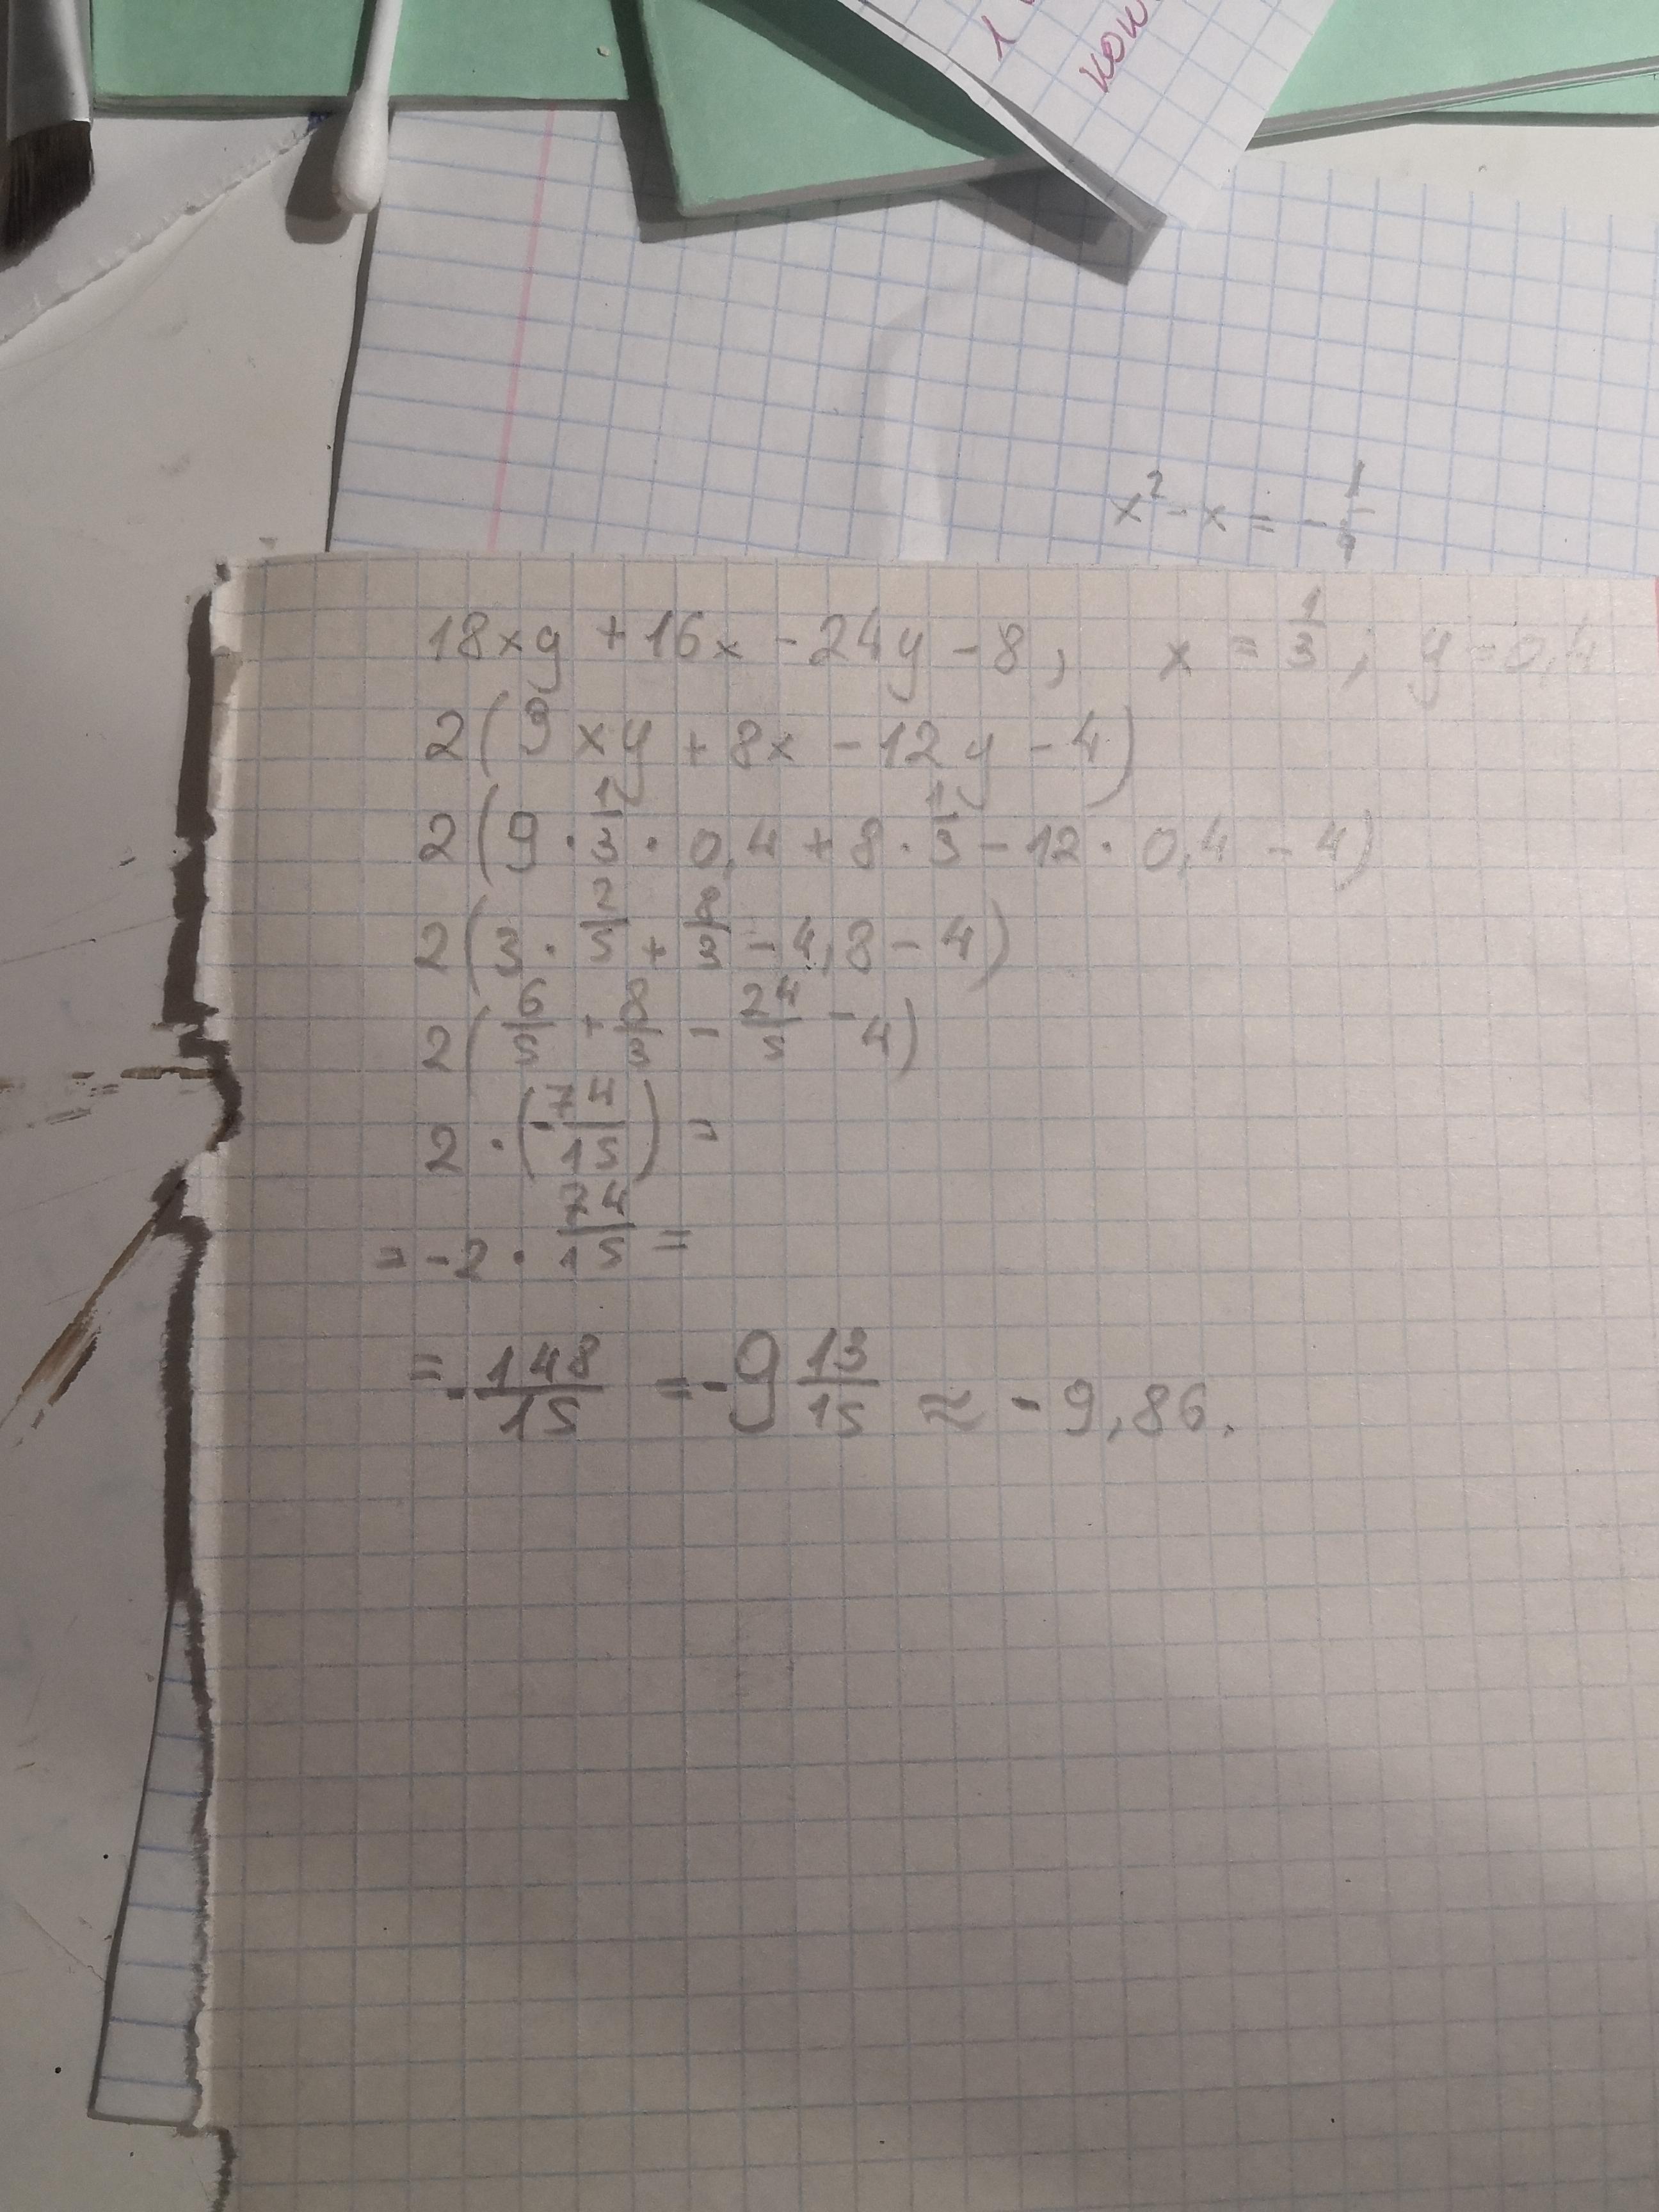 1
x² - x = - 1/
18xy + 16x - 24y - 8, x = 1/3; y = 0,4
2(9xy + 8x - 12y - 4)
2(9 · 1/3 · 0,4 + 8 · 1/3 - 12 · 0,4 - 4)
2(3 · 2/5 + 8/3 - 4,8 - 4)
2(6/5 + 8/3 - 24/5 - 4)
2 · (-74/15) =
= -2 · 74/15 =
= -148/15 = -9 13/15 ≈ -9,86.